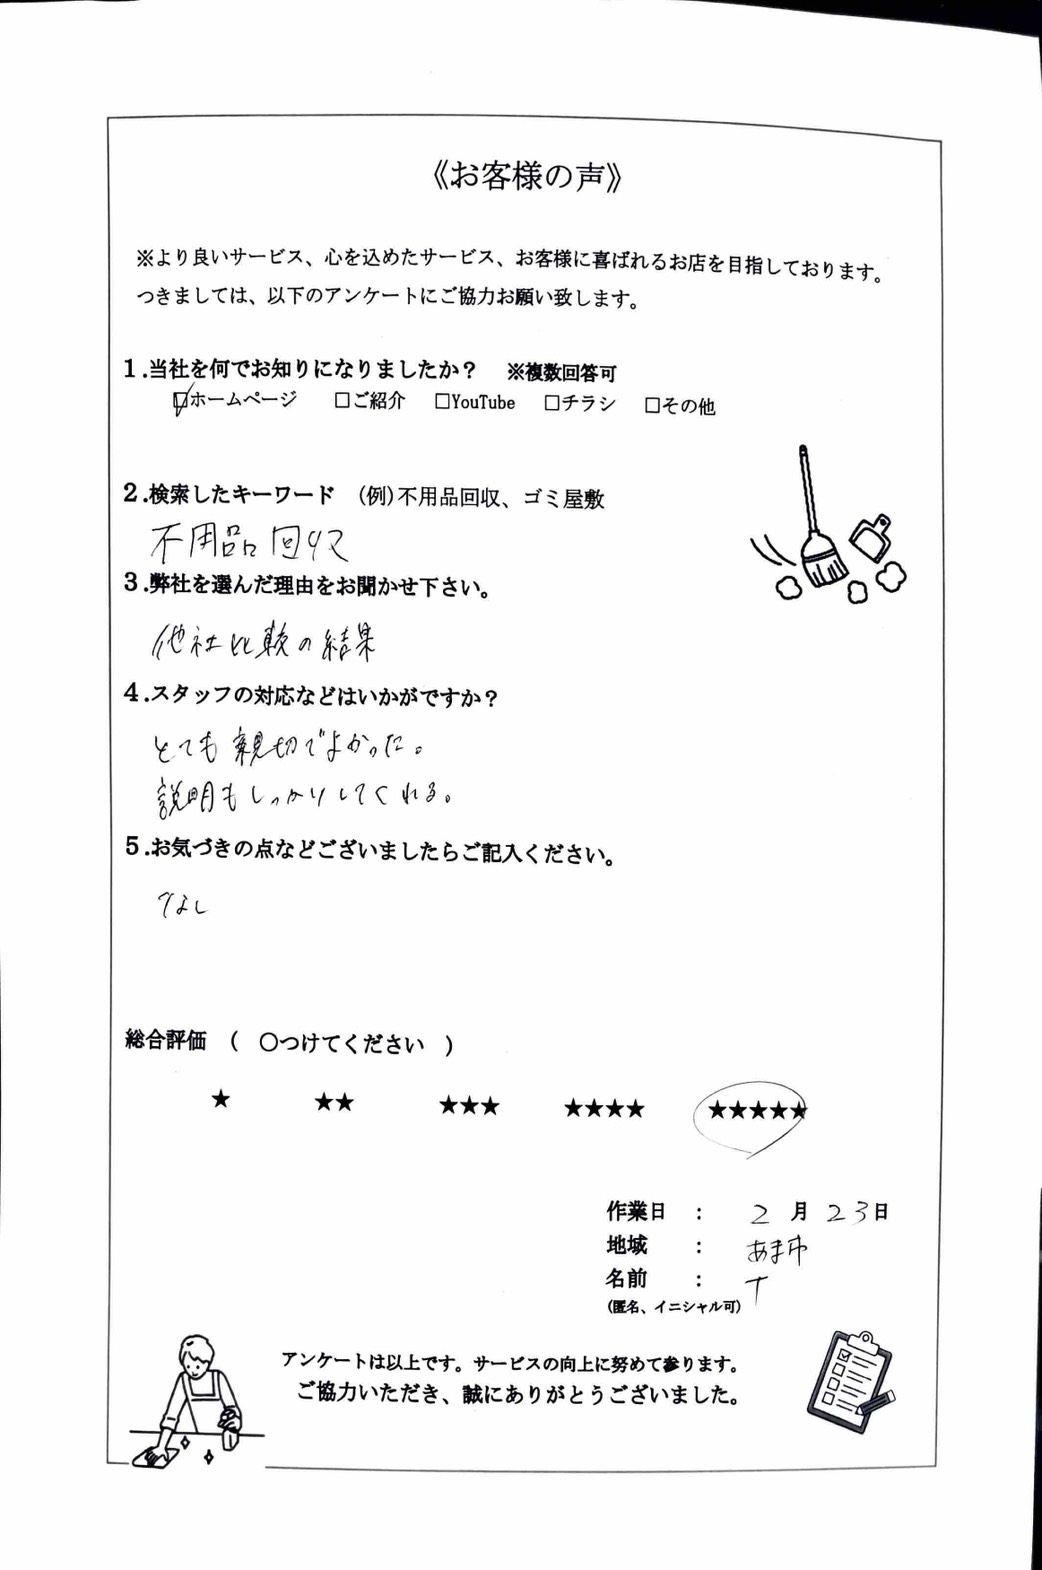 《お客様の声》
※より良いサービス、心を込めたサービス、お客様に喜ばれるお店を目指しております。
つきましては、以下のアンケートにご協力お願い致します。
1.当社を何でお知りになりましたか？　※複数回答可
☑ホームページ　□ご紹介　□YouTube　□チラシ　□その他
2.検索したキーワード　(例)不用品回収、ゴミ屋敷
不用品回収
3.弊社を選んだ理由をお聞かせ下さい。
他社比較の結果
4.スタッフの対応などはいかがですか？
とても親切でよかった。
説明もしっかりしてくれる。
5.お気づきの点などございましたらご記入ください。
なし
総合評価　(　○つけてください　)
★　★★　★★★　★★★★　★★★★★
作業日　：　2月23日
地域　：　あま市
名前　：　T
(匿名、イニシャル可)
アンケートは以上です。サービスの向上に努めて参ります。
ご協力いただき、誠にありがとうございました。